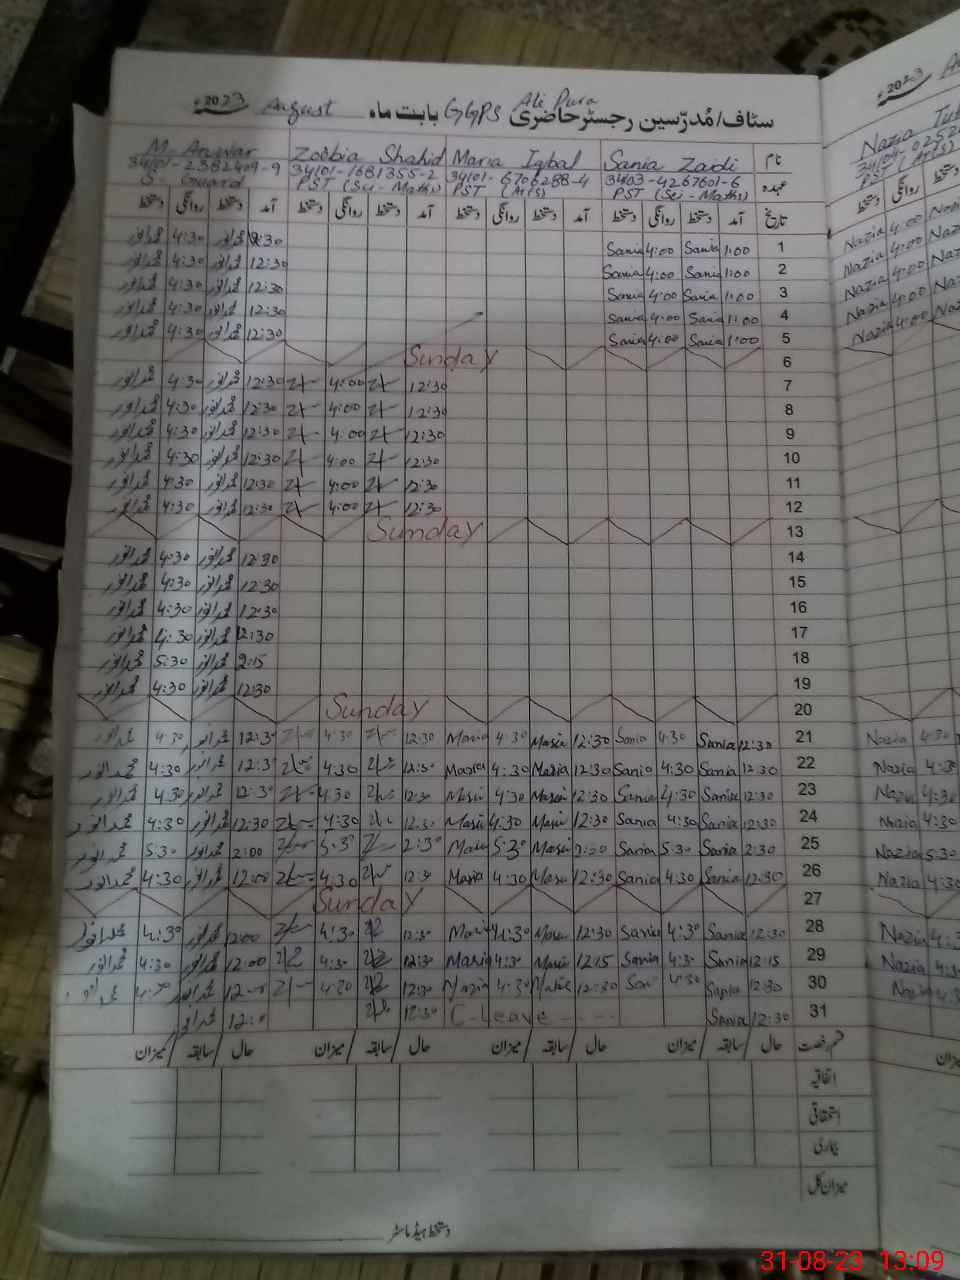 سٹاف/مُدرّسین رجسٹر حاضری Ali Pura GGPS بابت ماہ August 2023ء
نام Sania Zaidi Maria Iqbal Zoobia Shahid M. Anwar
34103-4267601-6 34101-6706288-4 34101-1681355-2 34101-2382409-9
عہدہ PST (Sci-Maths) PST (Arts) PST (Sci-Maths) S. Guard
تاریخ آمد دستخط روانگی دستخط آمد دستخط روانگی دستخط آمد دستخط روانگی دستخط آمد دستخط روانگی دستخط
1 1:00 Sania 4:00 Sania محمد انور 4:30 محمد انور
2 1:00 Sania 4:00 Sania 12:30 محمد انور 4:30 محمد انور
3 1:00 Sania 4:00 Sania 12:30 محمد انور 4:30 محمد انور
4 1:00 Sania 4:00 Sania 12:30 محمد انور 4:30 محمد انور
5 1:00 Sania 4:00 Sania 12:30 محمد انور 4:30 محمد انور
6 Sunday
7 12:30 4:00 12:30 محمد انور 4:30 محمد انور
8 12:30 4:00 12:30 محمد انور 4:30 محمد انور
9 12:30 4:00 12:30 محمد انور 4:30 محمد انور
10 12:30 4:00 12:30 محمد انور 4:30 محمد انور
11 12:30 4:00 12:30 محمد انور 4:30 محمد انور
12 12:30 4:00 12:30 محمد انور 4:30 محمد انور
13 Sunday
14 12:30 محمد انور 4:30 محمد انور
15 12:30 محمد انور 4:30 محمد انور
16 12:30 محمد انور 4:30 محمد انور
17 12:30 محمد انور 4:30 محمد انور
18 2:15 محمد انور 5:30 محمد انور
19 12:30 محمد انور 4:30 محمد انور
20 Sunday
21 12:30 Sania 4:30 Sania 12:30 Maria 4:30 Maria 12:30 4:30 12:30 محمد انور 4:30 محمد انور
22 12:30 Sania 4:30 Sania 12:30 Maria 4:30 Maria 12:30 4:30 12:30 محمد انور 4:30 محمد انور
23 12:30 Sania 4:30 Sania 12:30 Maria 4:30 Maria 12:30 4:30 12:30 محمد انور 4:30 محمد انور
24 12:30 Sania 4:30 Sania 12:30 Maria 4:30 Maria 12:30 4:30 12:30 محمد انور 4:30 محمد انور
25 2:30 Sania 5:30 Sania Maria 5:30 Maria 2:30 5:30 2:00 محمد انور 5:30 محمد انور
26 12:30 Sania 4:30 Sania 12:30 Maria 4:30 Maria 12:30 4:30 12:00 محمد انور 4:30 محمد انور
27 Sunday
28 12:30 Sania 4:30 Sania 12:30 Maria 4:30 Maria 12:30 4:30 12:00 محمد انور 4:30 محمد انور
29 12:15 Sania 4:30 Sania 12:15 Maria 4:30 Maria 12:30 4:30 12:00 محمد انور 4:30 محمد انور
30 12:30 Sania 4:30 12:30 Maria 4:30 Maria 12:30 4:30 12:00 محمد انور 4:30
31 12:30 Sania C-Leave 12:30 محمد انور
قسم رخصت حال سابقہ میزان حال سابقہ میزان حال سابقہ میزان حال سابقہ میزان
اتفاقیہ
استحقاقی
بیماری
میزان کل
دستخط ہیڈ ماسٹر
2023ء
PST (Arts)
دستخط روانگی دستخط
Nazia 4:00
Nazia 4:00
Nazia 4:00
Nazia 4:00
Nazia 4:00
Nazia 4:30
Nazia 4:30
Nazia 4:30
Nazia 4:30
Nazia 5:30
Nazia 4:30
Nazia
Nazia
Nazia
میزان
31-08-23 13:09